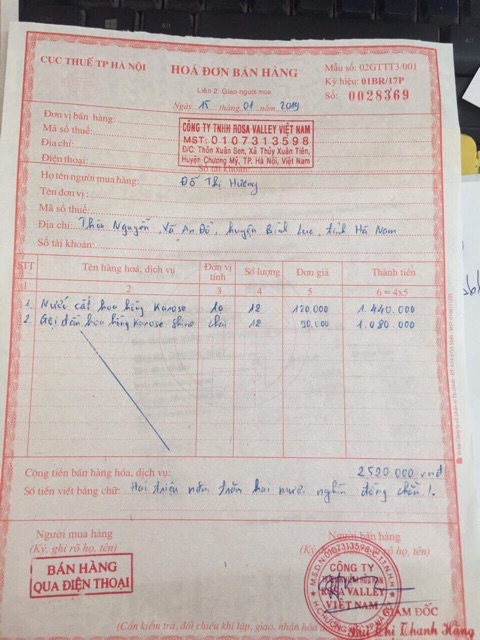 CỤC THUẾ TP HÀ NỘI
HOÁ ĐƠN BÁN HÀNG
Mẫu số: 02GTTT3/001
Liên 2: Giao người mua
Ký hiệu: 01BR/17P
Ngày 15 tháng 01 năm 2019
Số: 0028369
Đơn vị bán hàng:
CÔNG TY TNHH ROSA VALLEY VIỆT NAM
Mã số thuế:
MST: 0107313598
Địa chỉ:
Đ/C: Thôn Xuân Sen, Xã Thủy Xuân Tiên,
Huyện Chương Mỹ, TP. Hà Nội, Việt Nam
Điện thoại: Số tài khoản:
Họ tên người mua hàng: Đỗ Thị Hương
Tên đơn vị:
Mã số thuế:
Địa chỉ: Thôn Nguyễn, Xã An Đổ, huyện Bình Lục, tỉnh Hà Nam
Số tài khoản:
STT Tên hàng hoá, dịch vụ Đơn vị tính Số lượng Đơn giá Thành tiền
1 2 3 4 5 6 = 4x5
1. Nước cất hoa hồng Karose lọ 12 120.000 1.440.000
2. Gội đầu hoa hồng Karose chai 12 90.000 1.080.000
Cộng tiền bán hàng hóa, dịch vụ: 2520.000 vnđ
Số tiền viết bằng chữ: Hai triệu năm trăm hai mươi nghìn đồng chẵn!.
Người mua hàng
Người bán hàng
(Ký, ghi rõ họ, tên)
(Ký, họ, tên)
BÁN HÀNG
QUA ĐIỆN THOẠI
M.S.D.N:0107313598-C.T.T.N.H.H
CÔNG TY
ROSA VALLEY
VIỆT NAM
GIÁM ĐỐC
Thị Thanh Hằng
(Cần kiểm tra, đối chiếu khi lập, giao, nhận hóa